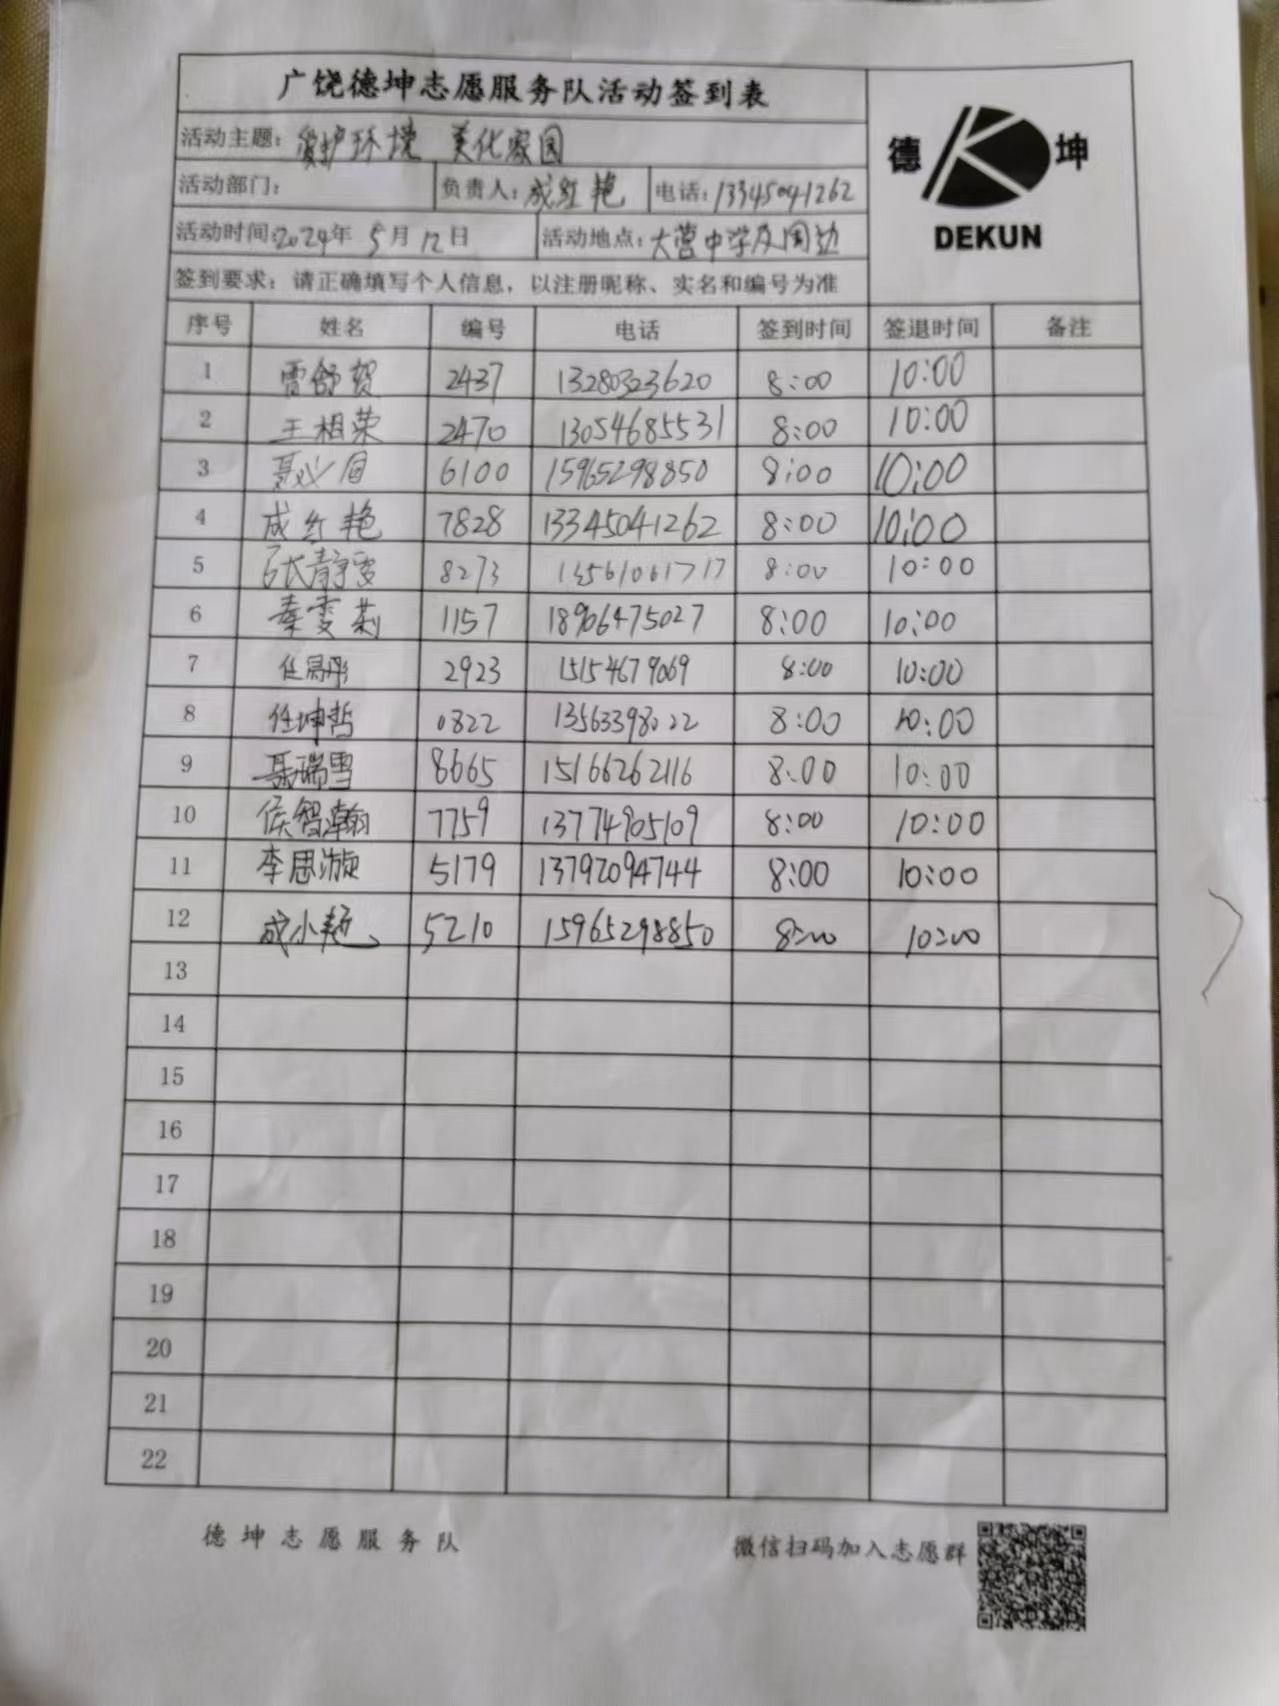 广饶德坤志愿服务队活动签到表
活动主题：爱护环境 美化家园
德 坤
DEKUN
活动部门： 负责人：成红艳 电话：13345041262
活动时间：2024年 5月 12日 活动地点：大营中学及周边
签到要求：请正确填写个人信息，以注册昵称、实名和编号为准
序号 姓名 编号 电话 签到时间 签退时间 备注
1 雷舒贺 2437 13280323620 8:00 10:00
2 王相荣 2470 13054685531 8:00 10:00
3 6100 15965298850 8:00 10:00
4 成红艳 7828 13345041262 8:00 10:00
5 张静雯 8273 13561061717 8:00 10:00
6 秦雯莉 1157 18906475027 8:00 10:00
7 2923 15154679069 8:00 10:00
8 任坤哲 0822 13563398022 8:00 10:00
9 聂瑞雪 8665 15166262116 8:00 10:00
10 侯智瀚 7759 13774905109 8:00 10:00
11 李思漩 5179 13792094744 8:00 10:00
12 成小艳 5210 15965298850 8:00 10:00
13
14
15
16
17
18
19
20
21
22
德坤志愿服务队 微信扫码加入志愿群